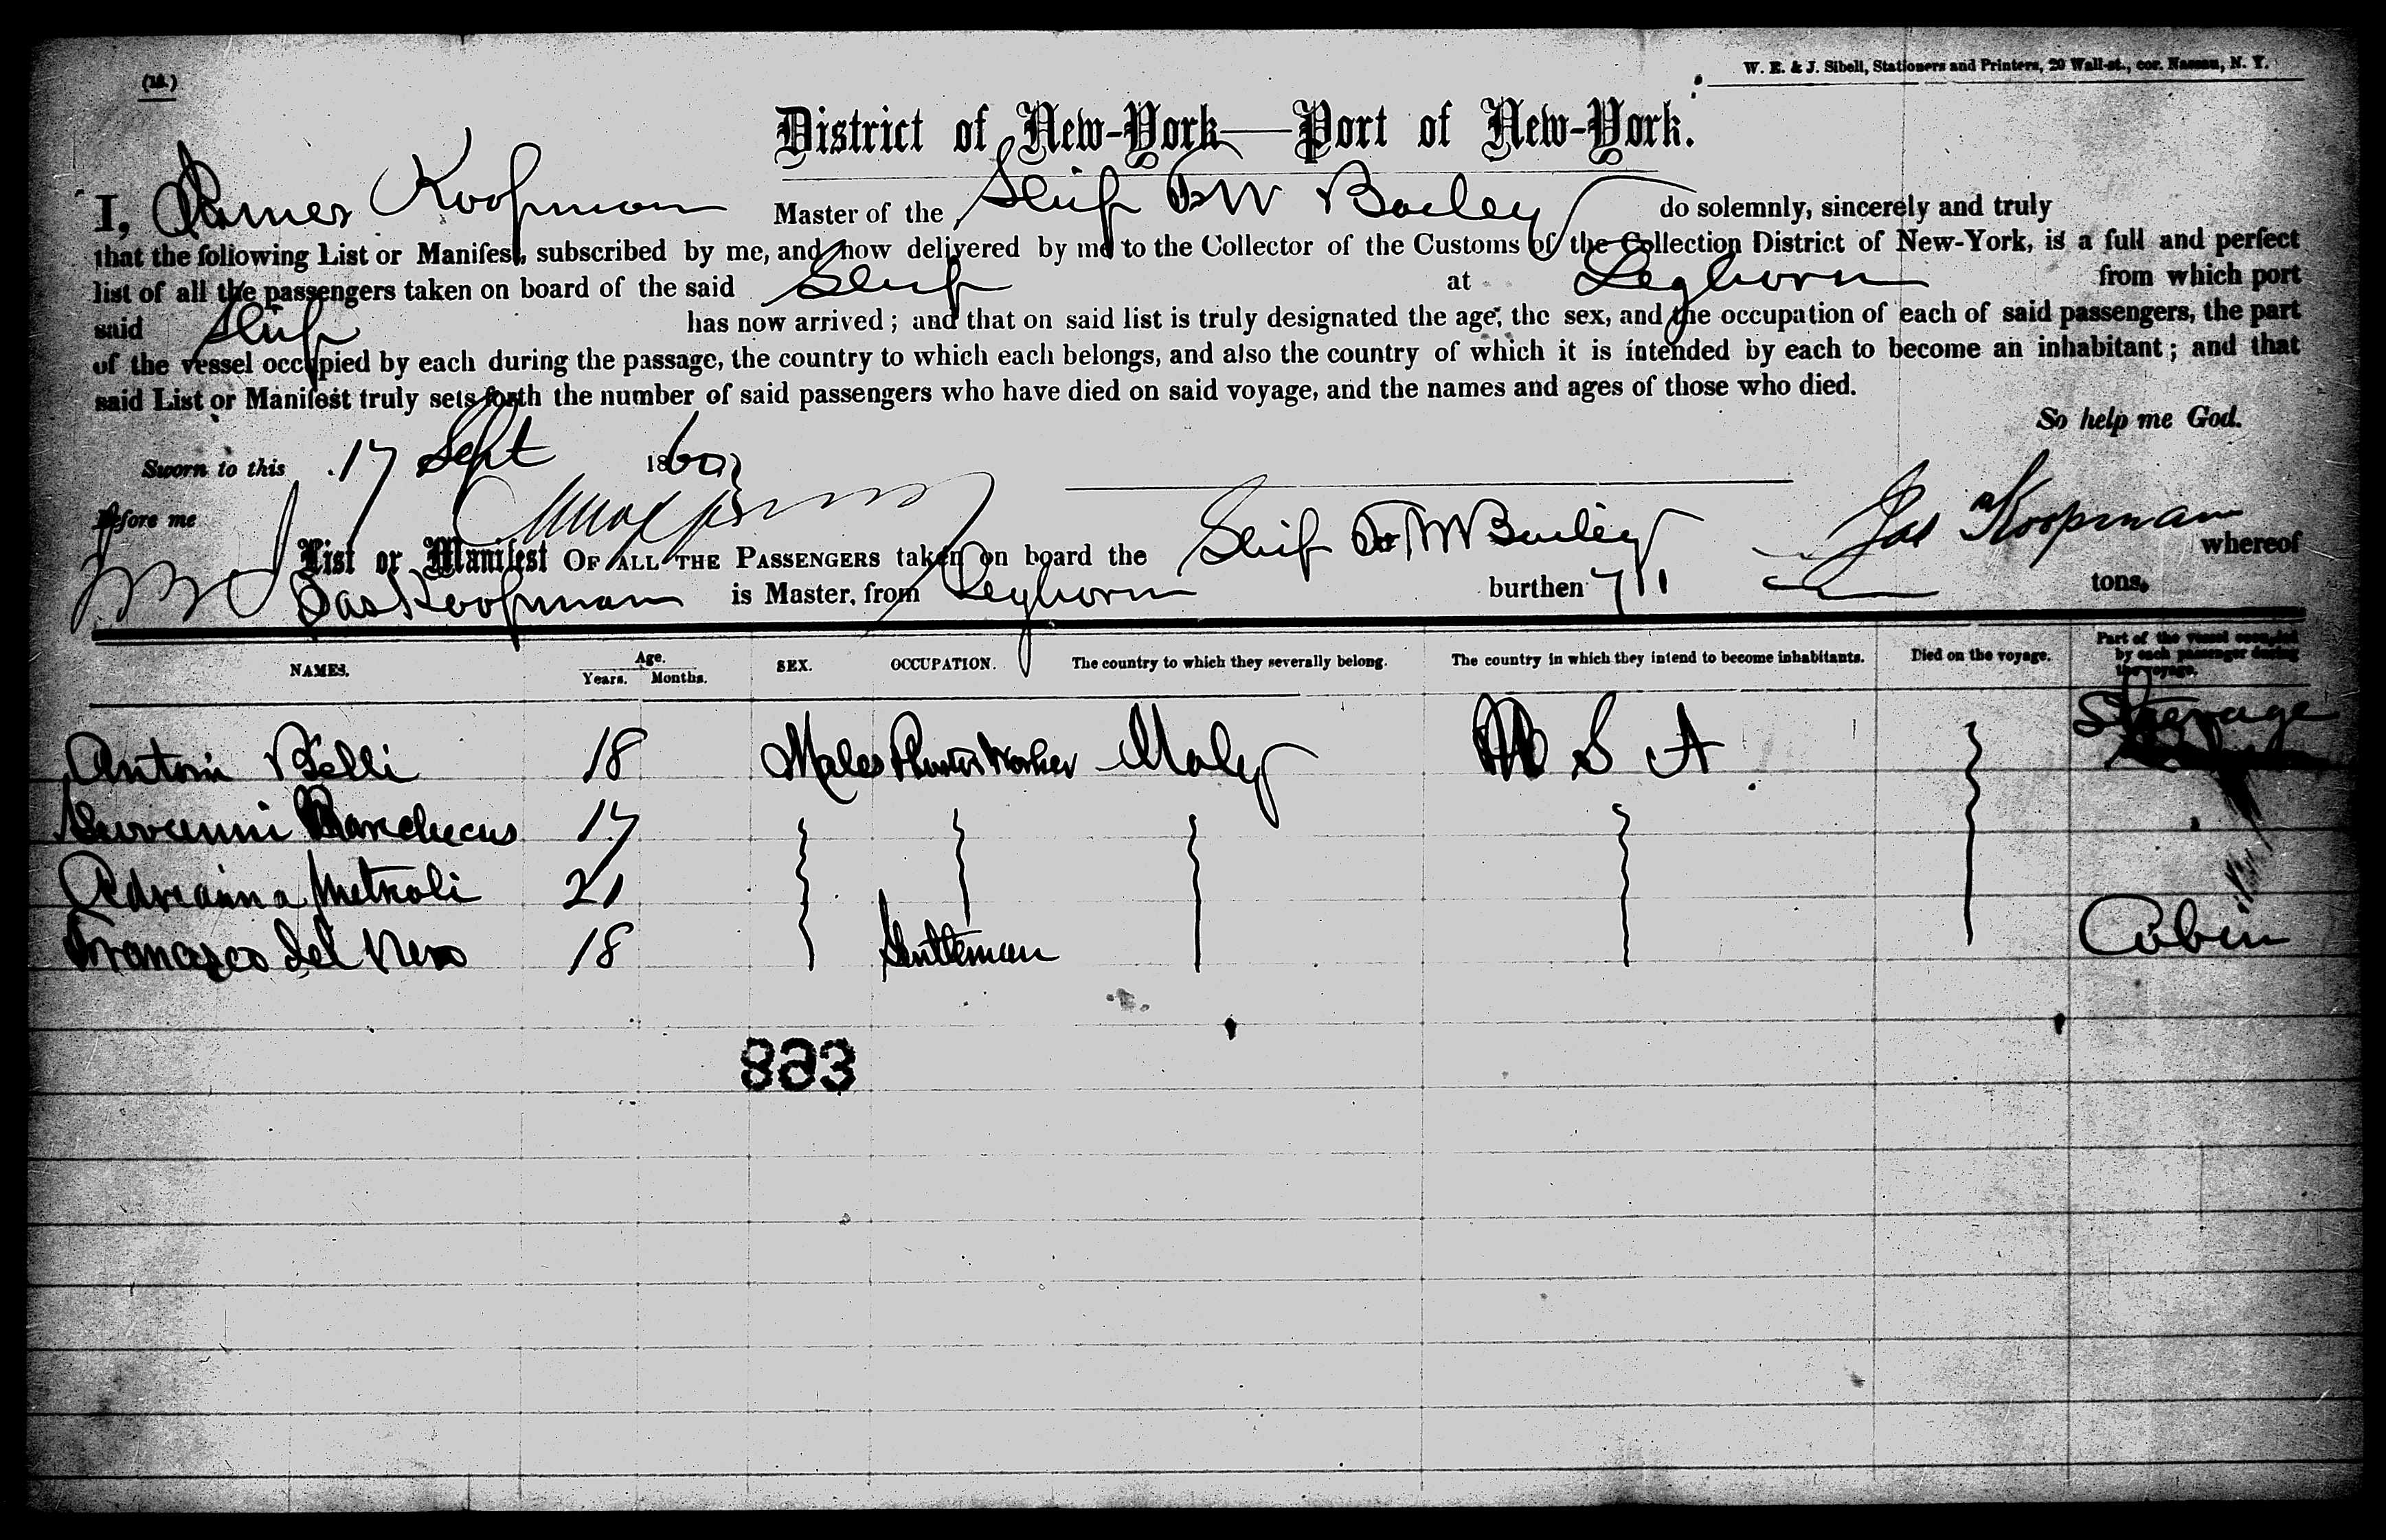 (18.)
W. E. & J. Sibell, Stationers and Printers, 20 Wall-st., cor. Nassau, N. Y.
District of New-York—Port of New-York.
I, James Koopman Master of the Ship F W Bailey do solemnly, sincerely and truly
that the following List or Manifest, subscribed by me, and now delivered by me to the Collector of the Customs of the Collection District of New-York, is a full and perfect
list of all the passengers taken on board of the said Ship at Leghorn from which port
said Ship has now arrived; and that on said list is truly designated the age, the sex, and the occupation of each of said passengers, the part
of the vessel occupied by each during the passage, the country to which each belongs, and also the country of which it is intended by each to become an inhabitant; and that
said List or Manifest truly sets forth the number of said passengers who have died on said voyage, and the names and ages of those who died.
So help me God.
Sworn to this 17 Sept 1860
Jas Koopman
Before me
List or Manifest OF ALL THE PASSENGERS taken on board the Ship F W Bailey whereof
Jas Koopman is Master, from Leghorn burthen 711 tons.
NAMES. Age. Years. Months. SEX. OCCUPATION. The country to which they severally belong. The country in which they intend to become inhabitants. Died on the voyage. Part of the vessel occupied by each passenger during the voyage.
Antoni Belli 18 Males Plaster Worker Italy U S A Steerage
Giovanni 17
Adreanna Metroli 21
Francisco del Nero 18 Gentleman Cabin
863